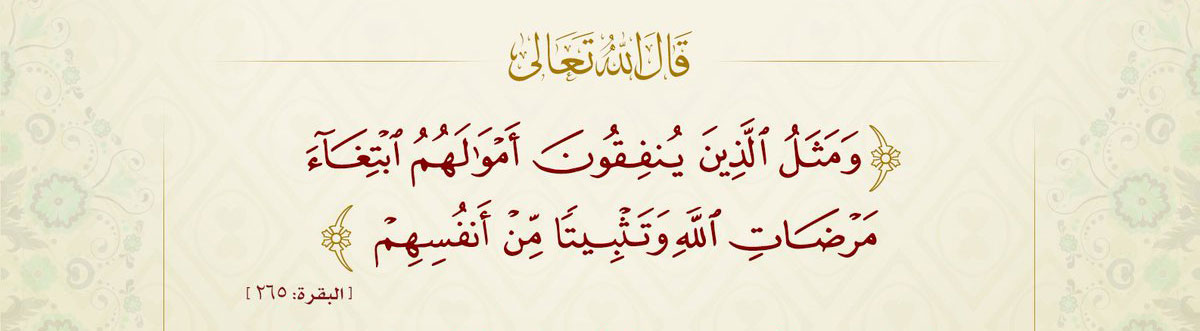 قَالَ اللهُ تَعَالَى
﴿ وَمَثَلُ ٱلَّذِينَ يُنفِقُونَ أَمْوَٰلَهُمُ ٱبْتِغَآءَ
مَرْضَاتِ ٱللَّهِ وَتَثْبِيتًا مِّنْ أَنفُسِهِمْ ﴾
[البقرة: ٢٦٥]